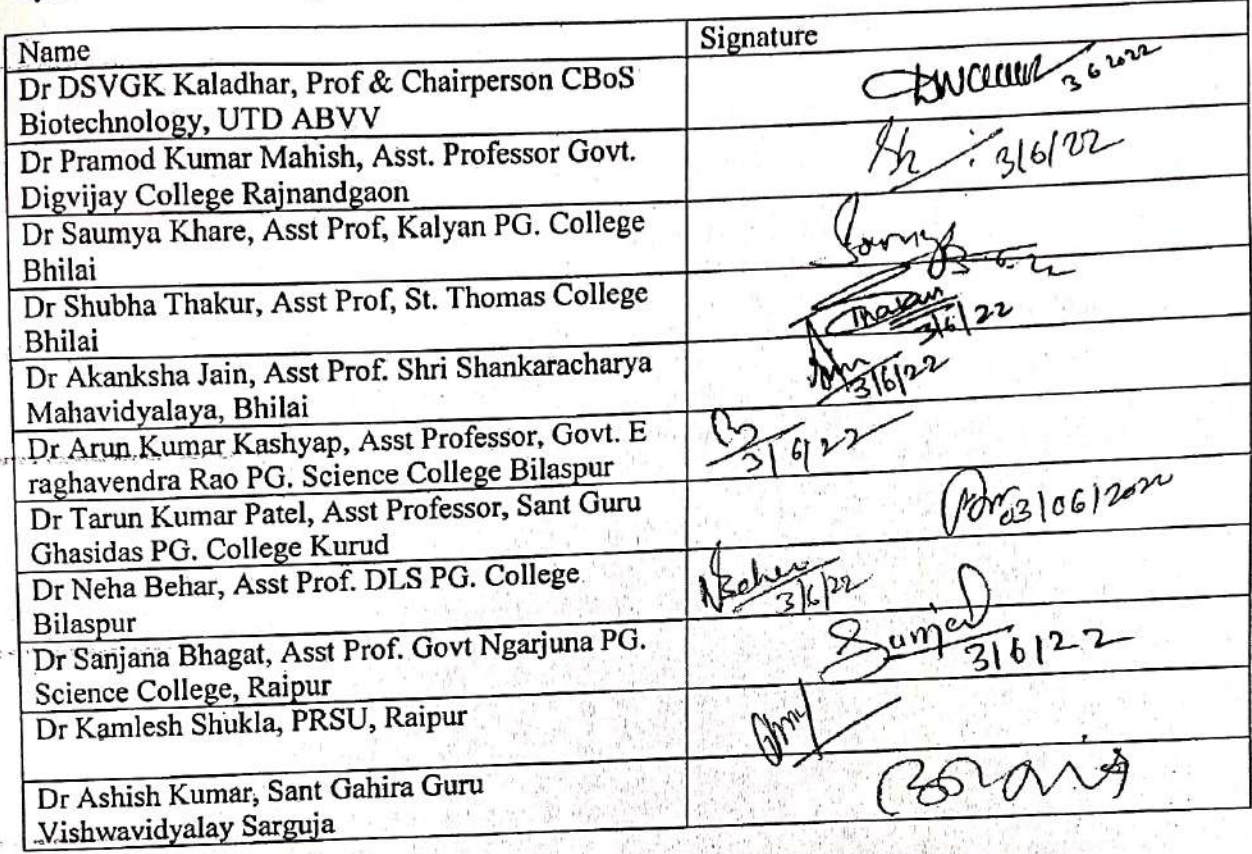 Name
Signature
Dr DSVGK Kaladhar, Prof & Chairperson CBoS
Biotechnology, UTD ABVV
3 6 2022
Dr Pramod Kumar Mahish, Asst. Professor Govt.
Digvijay College Rajnandgaon
3/6/22
Dr Saumya Khare, Asst Prof, Kalyan PG. College
Bhilai
Dr Shubha Thakur, Asst Prof, St. Thomas College
Bhilai
Thakur
3/6/22
Dr Akanksha Jain, Asst Prof. Shri Shankaracharya
Mahavidyalaya, Bhilai
3/6/22
Dr Arun Kumar Kashyap, Asst Professor, Govt. E
raghavendra Rao PG. Science College Bilaspur
3/6/22
Dr Tarun Kumar Patel, Asst Professor, Sant Guru
Ghasidas PG. College Kurud
03/06/2022
Dr Neha Behar, Asst Prof. DLS PG. College
Bilaspur
3/6/22
Dr Sanjana Bhagat, Asst Prof. Govt Ngarjuna PG.
Science College, Raipur
3/6/22
Dr Kamlesh Shukla, PRSU, Raipur
Dr Ashish Kumar, Sant Gahira Guru
Vishwavidyalay Sarguja